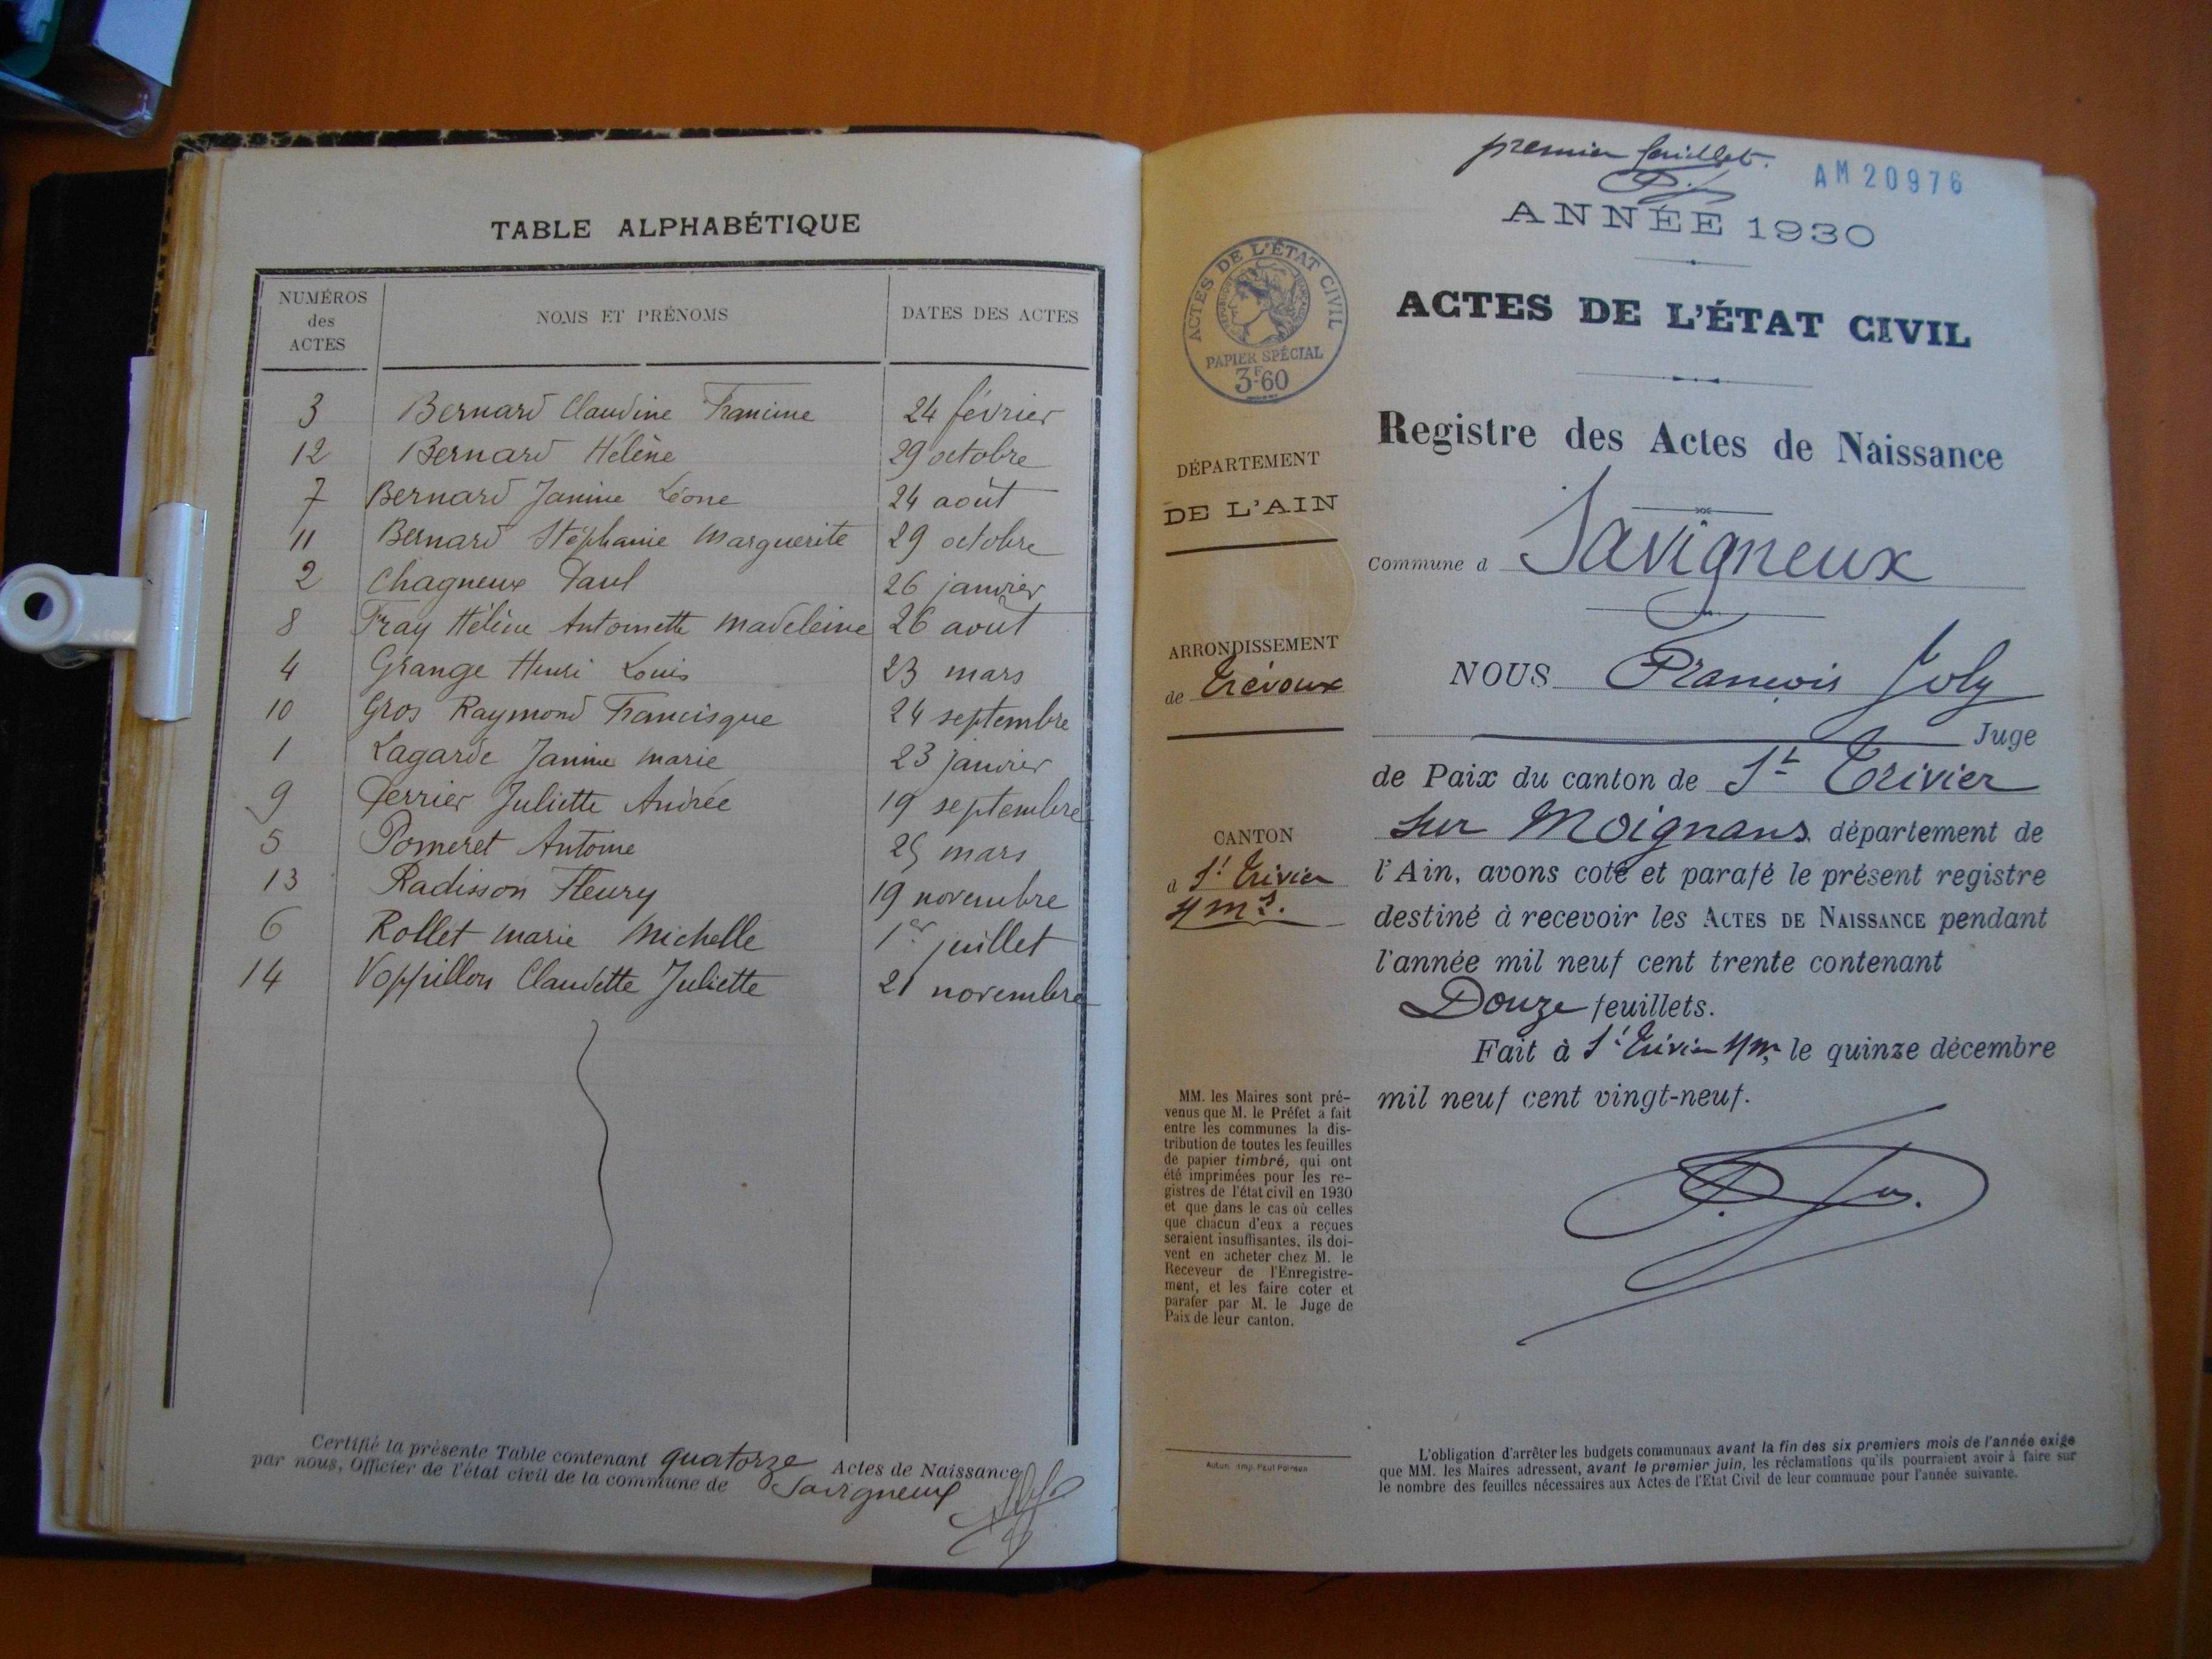 TABLE ALPHABÉTIQUE
NUMÉROS des ACTES NOMS ET PRÉNOMS DATES DES ACTES
3 Bernard Claudine Francine 24 février
12 Bernard Hélène 29 octobre
7 Bernard Janine Léone 24 août
11 Bernard Stéphanie Marguerite 29 octobre
2 Chagneux Paul 26 janvier
8 Fray Hélène Antoinette Madeleine 26 août
4 Grange Henri Louis 23 mars
10 Gros Raymond Francisque 24 septembre
1 Lagarde Janine marie 23 janvier
9 Perrier Juliette Andrée 19 septembre
5 Pomeret Antoine 25 mars
13 Radisson Fleury 19 novembre
6 Rollet marie Michelle 1er juillet
14 Voppillon Claudette Juliette 21 novembre
Certifié la présente Table contenant quatorze Actes de Naissance
par nous, Officier de l'état civil de la commune de Savigneux
premier feuillet.
AM20976
ANNÉE 1930
ACTES DE L'ÉTAT CIVIL
PAPIER SPÉCIAL
3F60
ACTES DE L'ÉTAT CIVIL
Registre des Actes de Naissance
DÉPARTEMENT
DE L'AIN
Commune d Savigneux
ARRONDISSEMENT
de Trévoux
NOUS François Joly
Juge
de Paix du canton de St Trivier
sur Moignans département de
CANTON
d St Trivier
s/ms.
l'Ain, avons coté et parafé le présent registre
destiné à recevoir les ACTES DE NAISSANCE pendant
l'année mil neuf cent trente contenant
Douze feuillets.
Fait à St Trivier s/m, le quinze décembre
mil neuf cent vingt-neuf.
MM. les Maires sont pré-
venus que M. le Préfet a fait
entre les communes la dis-
tribution de toutes les feuilles
de papier timbré, qui ont
été imprimées pour les re-
gistres de l'état civil en 1930
et que dans le cas où celles
que chacun d'eux a reçues
seraient insuffisantes, ils doi-
vent en acheter chez M. le
Receveur de l'Enregistre-
ment, et les faire coter et
parafer par M. le Juge de
Paix de leur canton.
Autun. Imp. Paul Poirson
L'obligation d'arrêter les budgets communaux avant la fin des six premiers mois de l'année exige
que MM. les Maires adressent, avant le premier juin, les réclamations qu'ils pourraient avoir à faire sur
le nombre des feuilles nécessaires aux Actes de l'Etat Civil de leur commune pour l'année suivante.